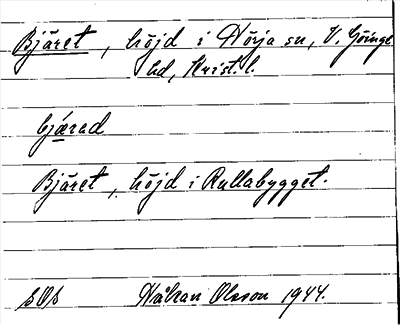 Bjäret, höjd i Hörja sn, V. Göinge
hd, Krist. l.
bjærad
Bjäret, höjd i Rallabygget.
Håkan Olsson 1944.